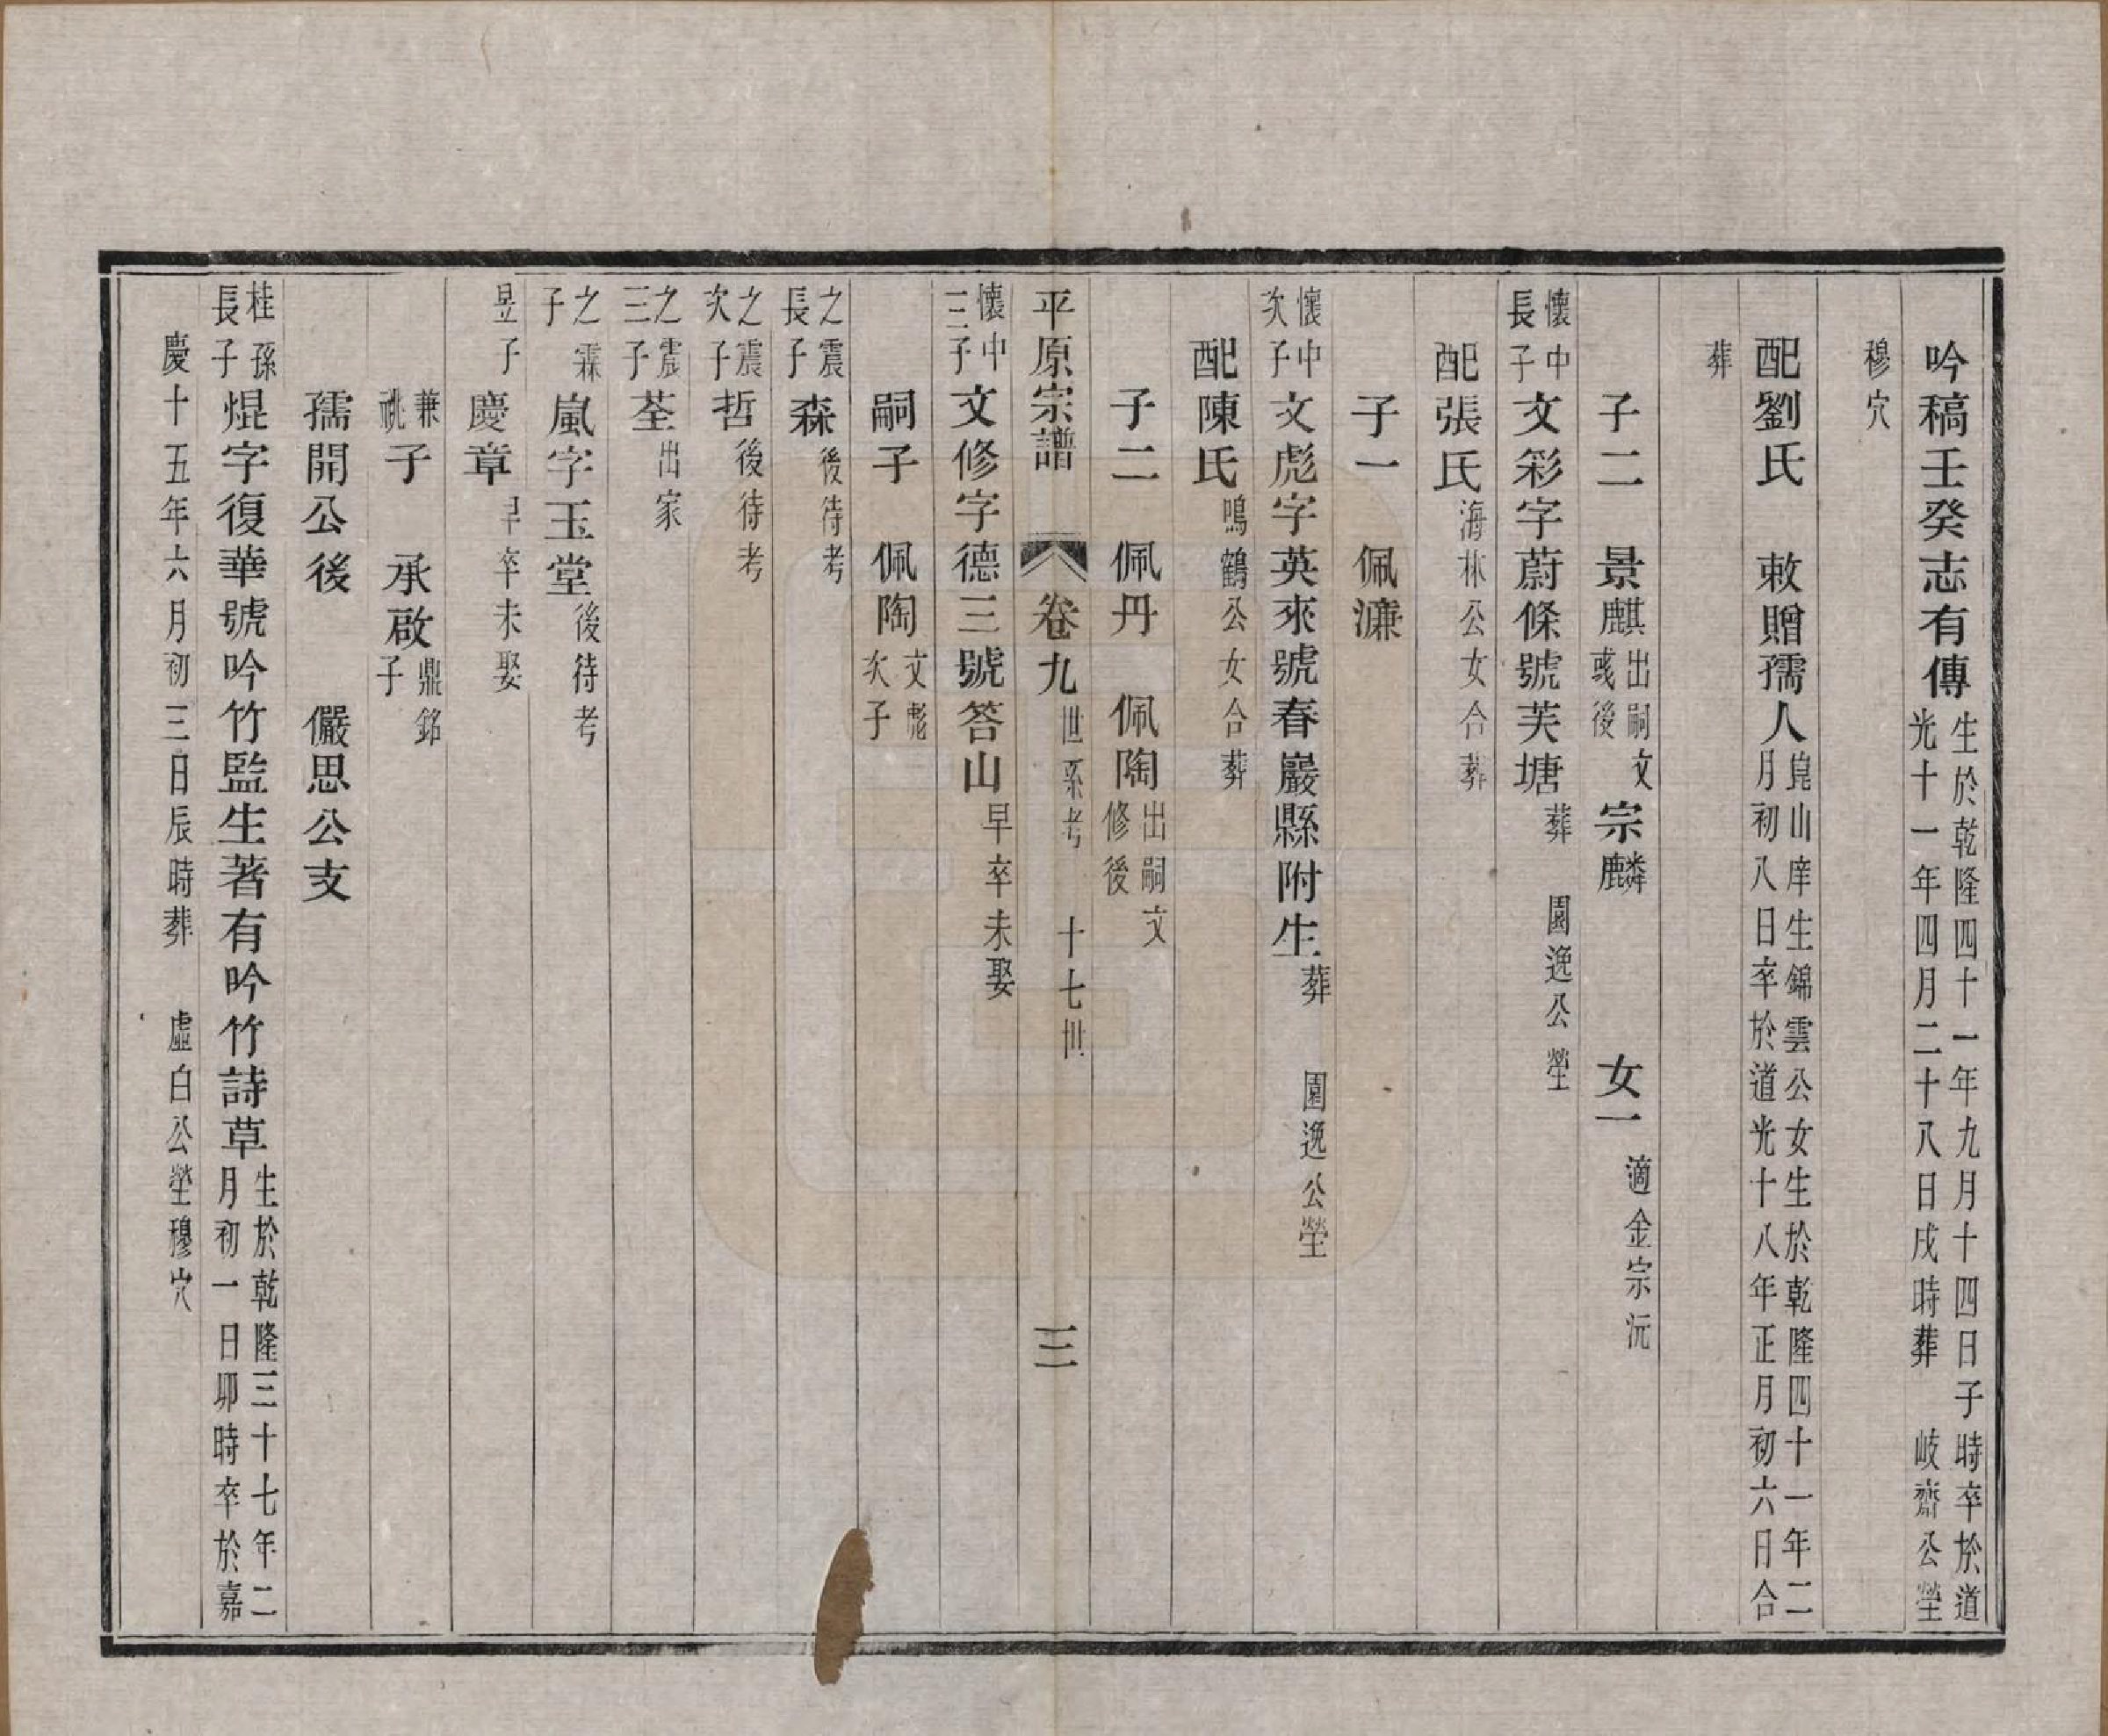 吟稿壬癸志有傳生於乾隆四十一年九月十四日子時卒於道光十一年四月二十八日戌時葬　岐齋公塋
穆穴
配劉氏　敕贈孺人崑山庠生錦雲公女生於乾隆四十一年二月初八日卒於道光十八年正月初六日合
葬
子二　景麒出嗣文彧後　宗麟　女一適金宗沅
懷中長子文彩字蔚條號芙塘葬　園逸公塋
配張氏海林公女合葬
子一　佩濂
懷中次子文彪字英來號春巖縣附生葬　園逸公塋
配陳氏鳴鶴公女合葬
子二　佩丹　佩陶出嗣文修後
平原宗譜　卷九世系考　十七世　三
懷中三子文修字德三號答山早卒未娶
嗣子　佩陶文彪次子
之震長子森後待考
之震次子哲後待考
之震三子荃出家
之霖子嵐字玉堂後待考
昱子慶章早卒未娶
兼祧子　承啟鼎銘子
孺開公後　儼思公支
桂孫長子焜字復華號吟竹監生著有吟竹詩草生於乾隆三十七年二月初一日卯時卒於嘉
慶十五年六月初三日辰時葬　虛白公塋穆穴